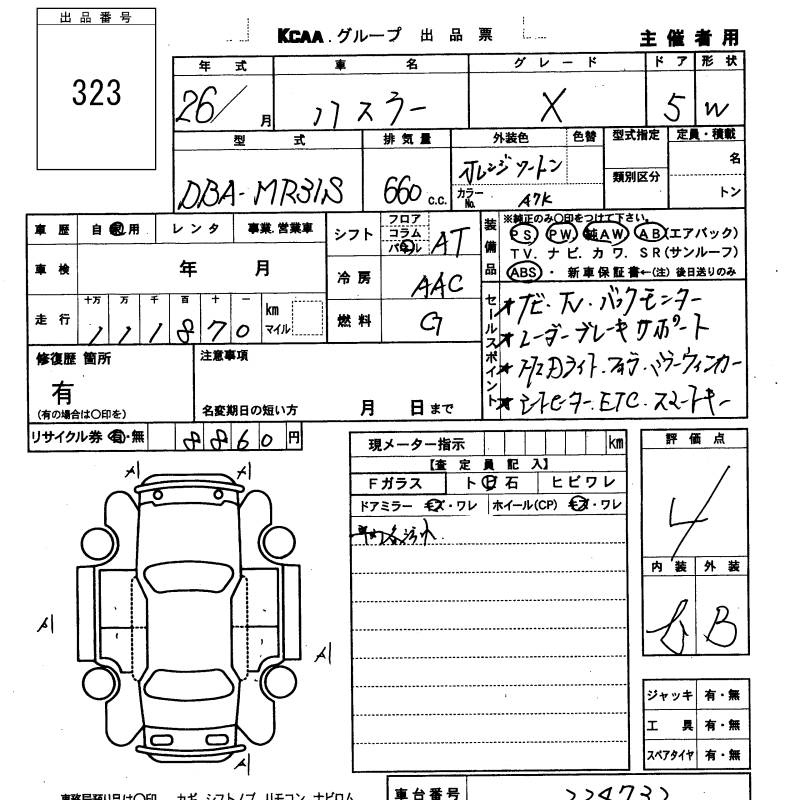 出品番号
323
KCAA.グループ 出品票
主催者用
年式 車名 グレード ドア 形状
26/ 月 ハスラー X 5 W
型式 排気量 外装色 色替 型式指定 定員・積載
DBA-MR31S 660 c.c. オレンジツートン 類別区分 名
カラーNo. A7K トン
車歴 自家用 レンタ 事業.営業車
シフト フロア コラム パネル AT
装備品 ※純正のみ〇印をつけて下さい。
PS PW 純AW AB(エアバック)
TV. ナビ. カワ. SR(サンルーフ)
ABS ・ 新車保証書←(注) 後日送りのみ
車検 年 月
冷房 AAC
走行 十万 万 千 百 十 一
111870 km マイル
燃料 G
セールスポイント
★ナビ・TV・バックモニター
★レーダーブレーキサポート
★HIDライト.フォグ.ミラーウィンカー
★シートヒーター.ETC.スマートキー
修復歴 箇所
有
(有の場合は〇印を)
注意事項
名変期日の短い方 月 日まで
リサイクル券 有・無 8860円
現メーター指示 km
【査定員記入】
Fガラス ト 石 ヒビワレ
ドアミラー キズ・ワレ ホイール(CP) キズ・ワレ
評価点
4
内装 外装
B
A1
A1
A1
A1
A1
ジャッキ 有・無
工具 有・無
スペアタイヤ 有・無
車台番号